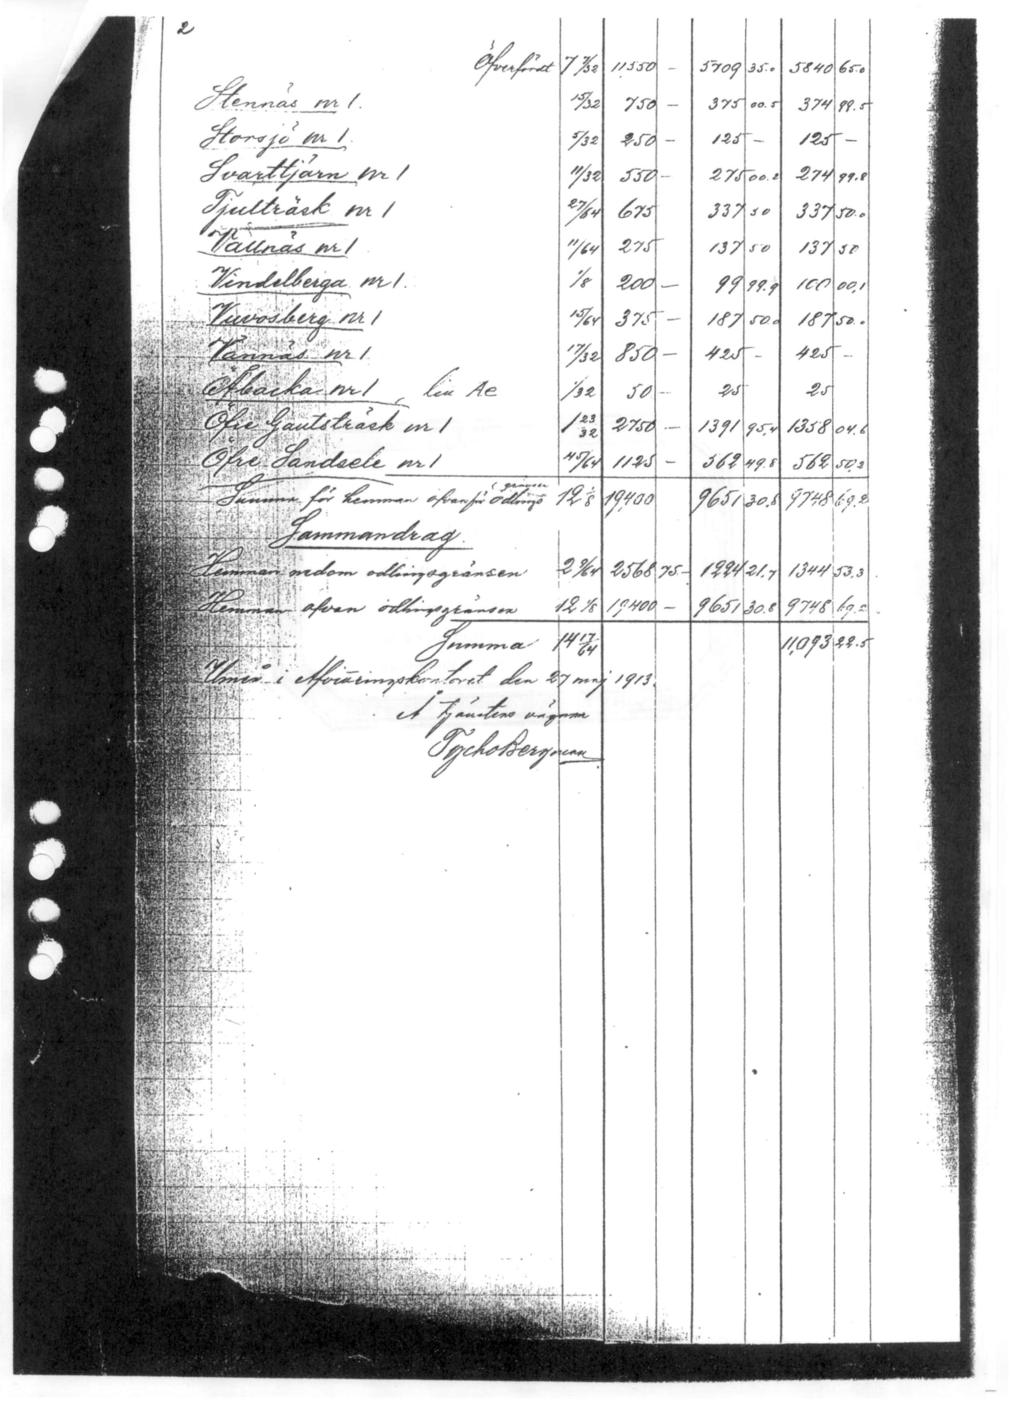 2
Öfverfördt 7 7/32 11,550 - 5709 35.0 5840 65.0
Stennäs nr 1. 15/32 750 - 375 00.5 374 99.5
Storsjö nr 1. 5/32 250 - 125 - 125 -
Svarttjärn nr 1 11/32 550 - 275 00.2 274 99.8
Tjulträsk nr 1 27/64 675 337 50 337 50.0
Vallnäs nr 1 11/64 275 137 50 137 50
Vindelberga nr 1. 1/8 200 - 99 99.9 100 00.1
Vuvosberg nr 1 15/64 375 - 187 50.0 187 50.0
Vännäs nr 1 17/32 850 - 425 - 425 -
Åbacka nr 1, litt Ae 1/32 50 - 25 25
Öfre Gautsträsk nr 1 1 23/32 2750 - 1391 95.4 1358 04.6
Öfre Sandsele nr 1 45/64 1125 - 562 49.8 562 50.2
Summa för hemman ofvanför odlingsgränsen 12 1/8 19,400 9651 30.8 9748 69.2
Sammandrag.
Hemman nedom odlingsgränsen 2 9/64 2568 75 - 1224 21.7 1344 53.3
Hemman ofvan odlingsgränsen 12 1/8 19,400 - 9651 30.8 9748 69.2
Summa 14 17/64 11,093 22.5
Umeå i Afvittringskontoret den 27 maj 1913.
Å tjänstens vägnar
Tycho Bergman